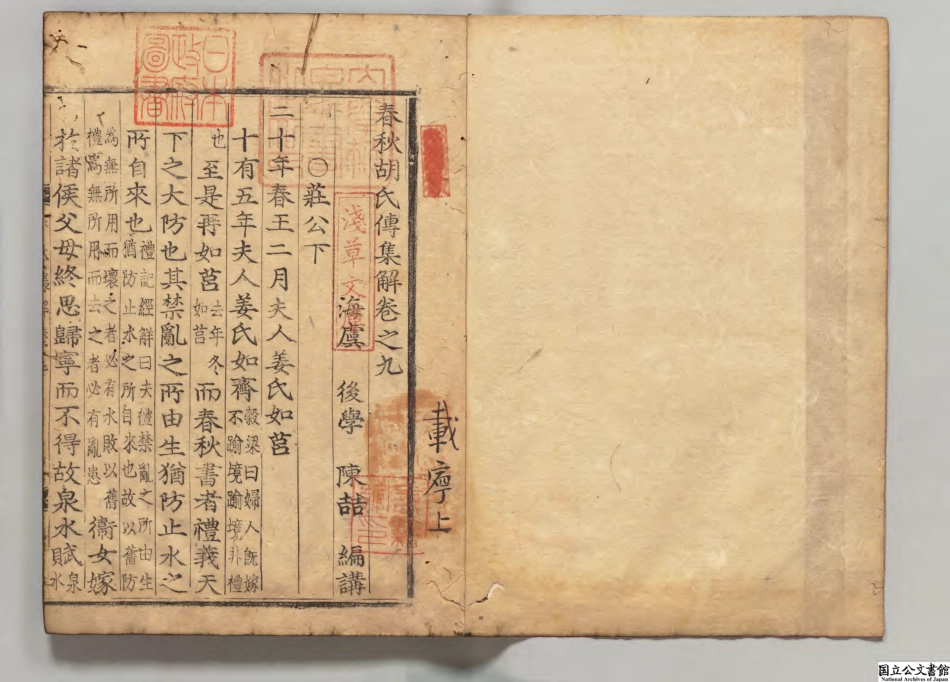 春秋胡氏傳集解卷之九
海虞 後學 陳喆 編講
○莊公下
二十年春王二月夫人姜氏如莒
十有五年夫人姜氏如齊穀梁曰婦人旣嫁不踰境踰境非禮
也至是再如莒去年冬如莒而春秋書者禮義天
下之大防也其禁亂之所由生猶防止水之
所自來也禮記經解曰夫禮禁亂之所由生猶防止水之所自來也故以舊防
為無所用而壞之者必有水敗以舊禮爲無所用而去之者必有亂患衛女嫁
於諸侯父母終思歸寧而不得故泉水賦泉水
載寧上
日本政府圖書
淺草文庫
国立公文書館
National Archives of Japan